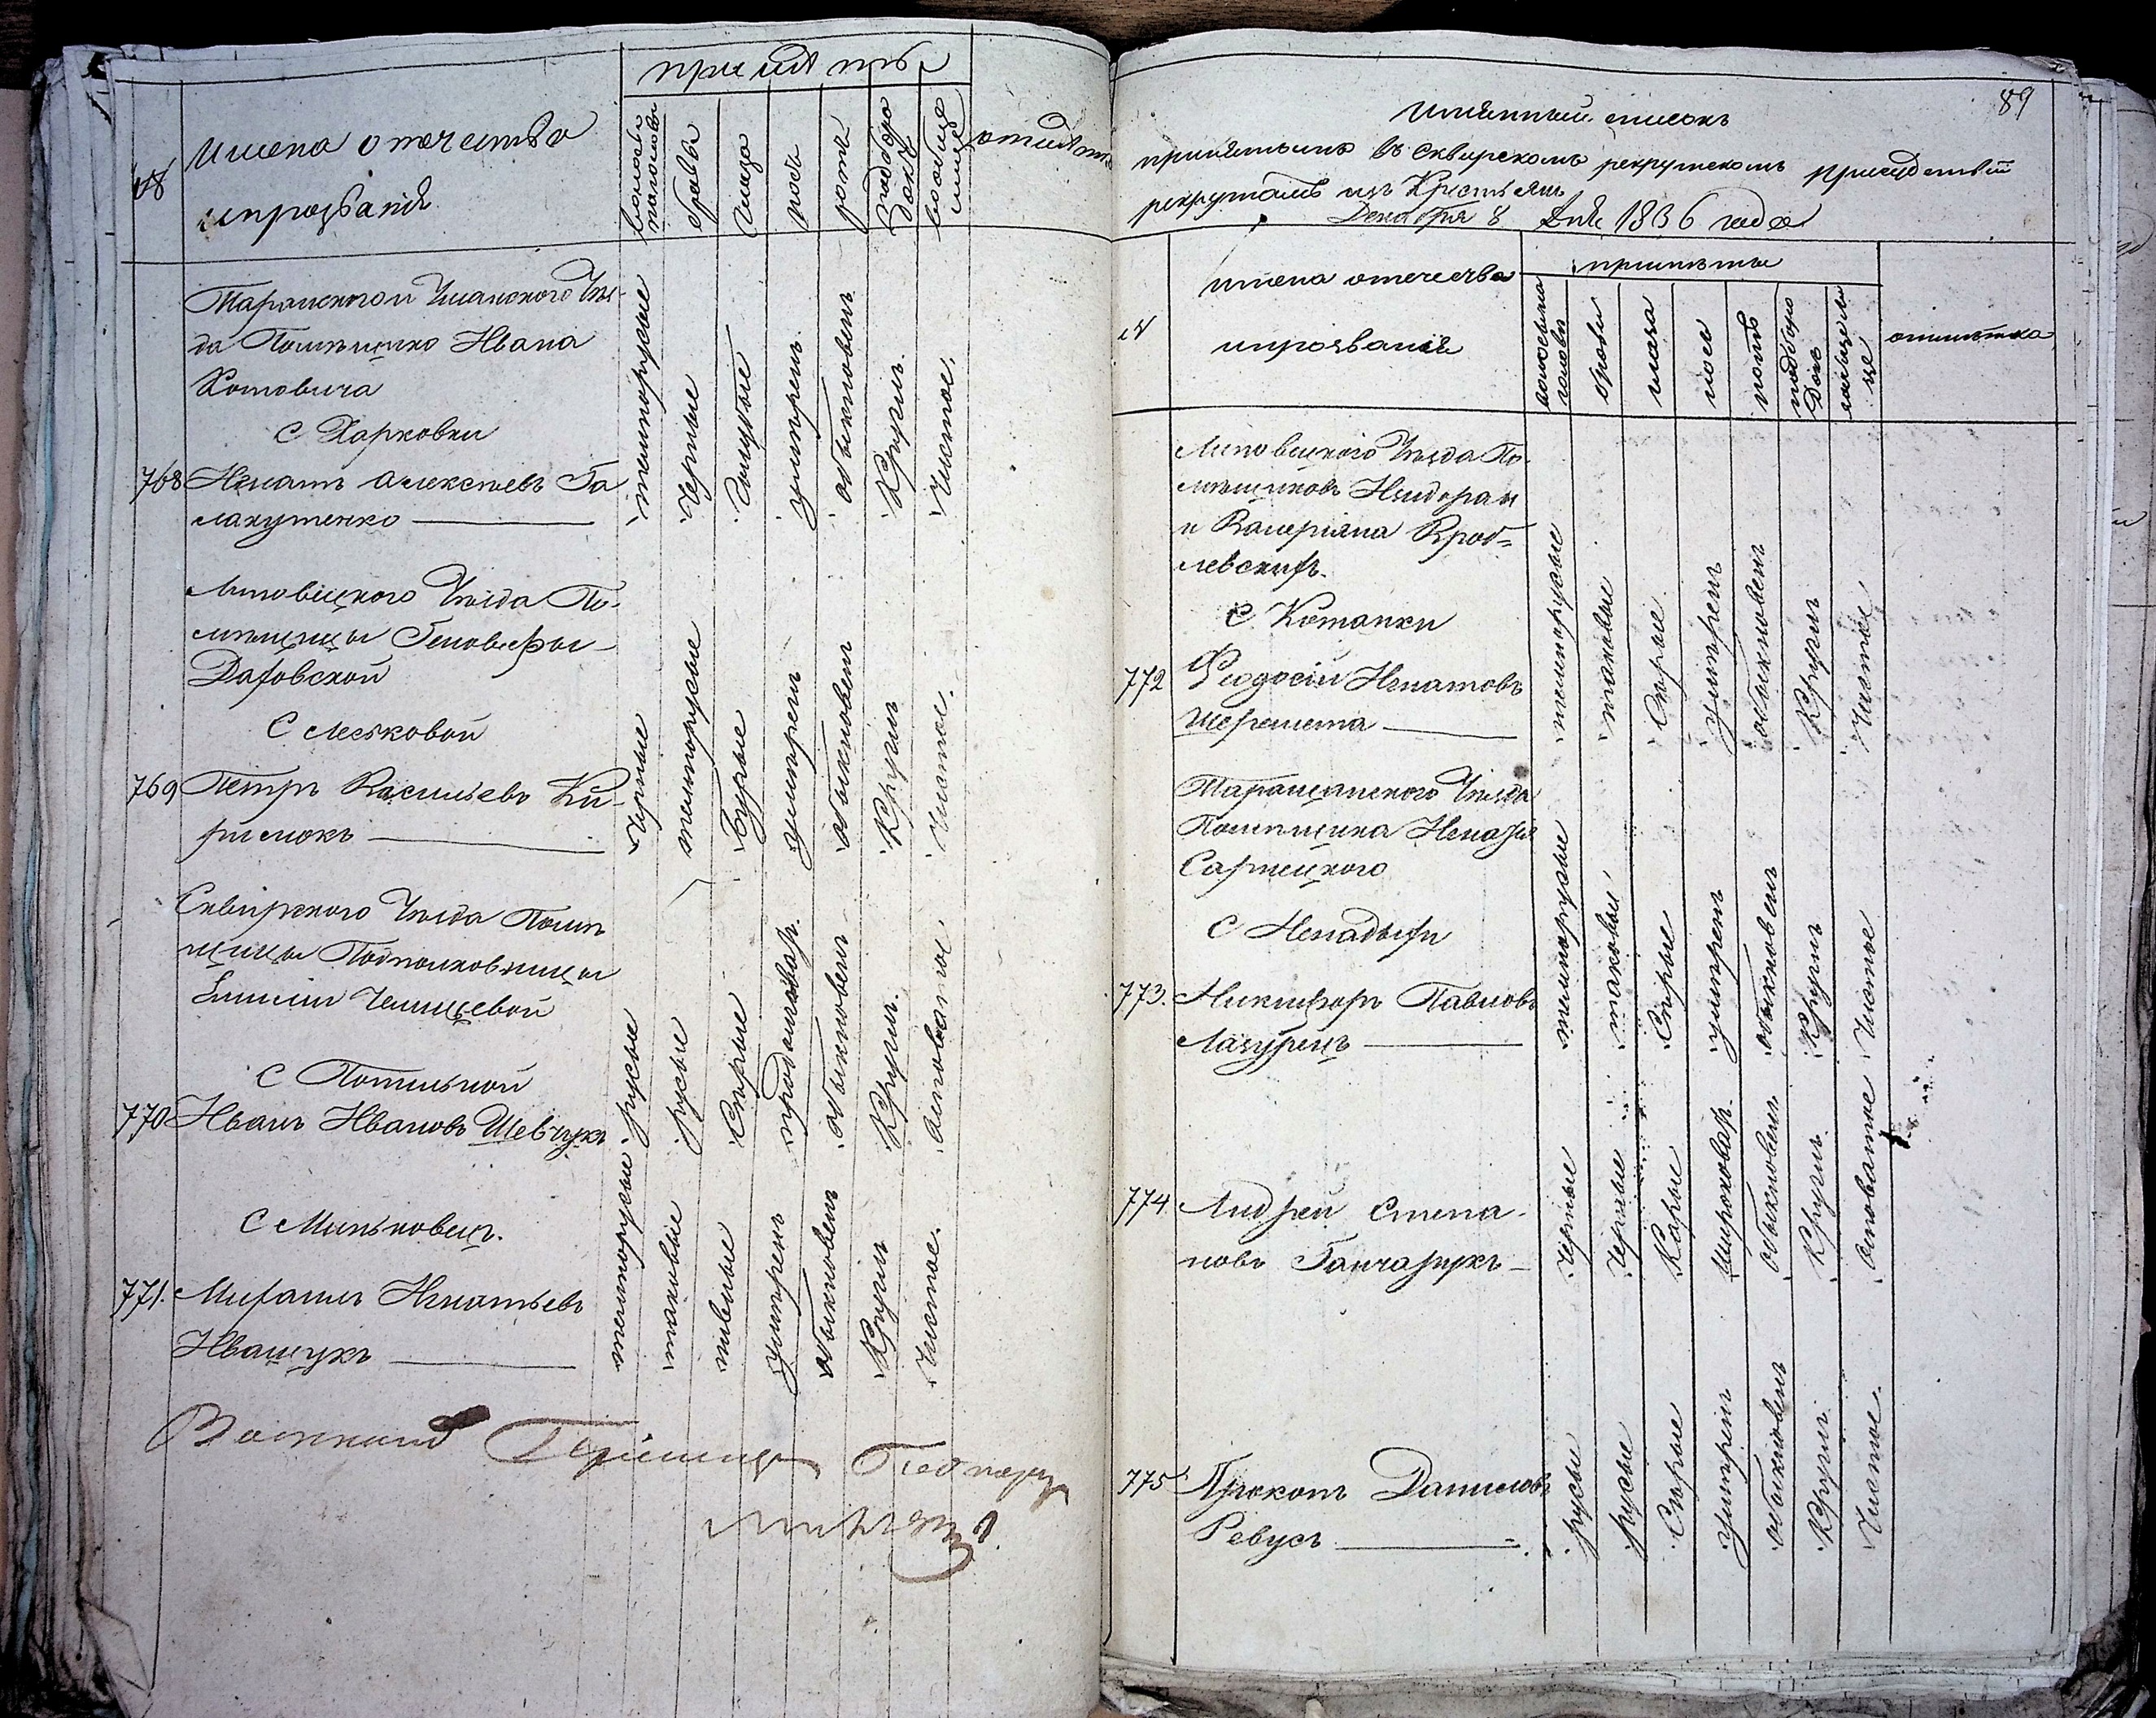 примѣты
№
Имена отечества
и прозванія
волоса на головѣ
брови
глаза
носъ
ротъ
подборо
докъ
лице
Таращанского Уѣз-
да Помѣщика Ивана
Котовича
С Харковки
768 Игнатъ Алексѣевъ Га
лакутенко
темнорусые
Черные
Голубые
умѣренъ
обыкновенъ
Кругл.
Чистое
Липовецкого Уѣзда По-
мѣщицы Геновефы
Даховской
С Леськовой
769 Петръ Васильевъ Ки-
рилюкъ
Черные
темнорусые
Бурые
умѣренъ
обыкновенъ
Круглъ
Чистое
Сквирского Уѣзда Помѣ
щицы Подполковницы
Емиліи Челищевой
С Топильной
770 Иванъ Ивановъ Шевчукъ
русые
русые
Сѣрые
продолговат.
обыкновенъ
Кругл.
С Миньковецъ.
771. Михаилъ Игнатьевъ
Иващукъ
темнорусые
таковые
умѣренъ
обыкновенъ
Круглъ
Чистое.
89
Имянный списокъ
принятымъ въ Сквирскомъ рекрутскомъ присудствіи
рекрутамъ изъ Крестьянъ
Декабря 8 дня 1836 года
№
имена отечества
и прозванія
примѣты
волосы на
головѣ
брови
глаза
носъ
подборо
докъ
отмѣтка
Липовецкого Уѣзда По-
мѣщиковъ Изидора
и Валеріяна Вроб=
левскихъ.
С Китайки
772 Феодосій Игнатовъ
Шеремета
темнорусые
таковые
Сѣрые
умѣренъ
обыкновенъ
Круглъ
Чистое
Таращанского Уѣзда
Помѣщика
Сарнецкого
С Ненадыхи
773. Никифоръ Павловъ
Лазурець
темнорусые
таковые
Сѣрые
умѣренъ
обыкновенъ
Круглъ
Чистое
774. Андрей Степа-
новъ Ганчарукъ
Черные
Черные
Карые
широковат.
обыкновенъ
Круглъ
775 Прокопъ Даниловъ
Ревусъ
русы
русые
Сѣрые
умѣренъ
обыкновенъ
Круглъ
Чистое.